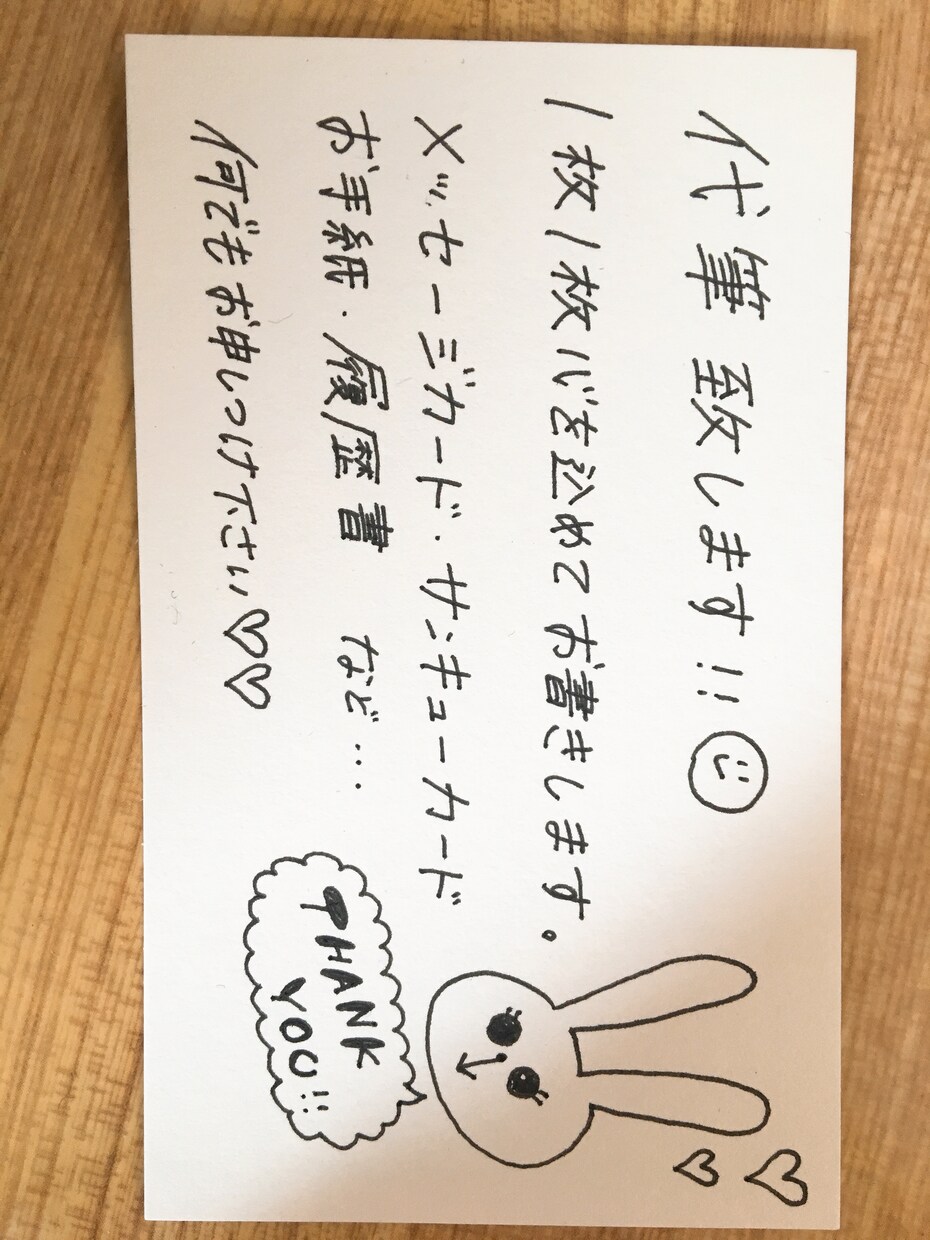 代筆致します!!
1枚1枚心を込めてお書きします。
メッセージカード・サンキューカード
お手紙・履歴書 など…
何でもお申しつけ下さい♡♡
THANK
YOU!!